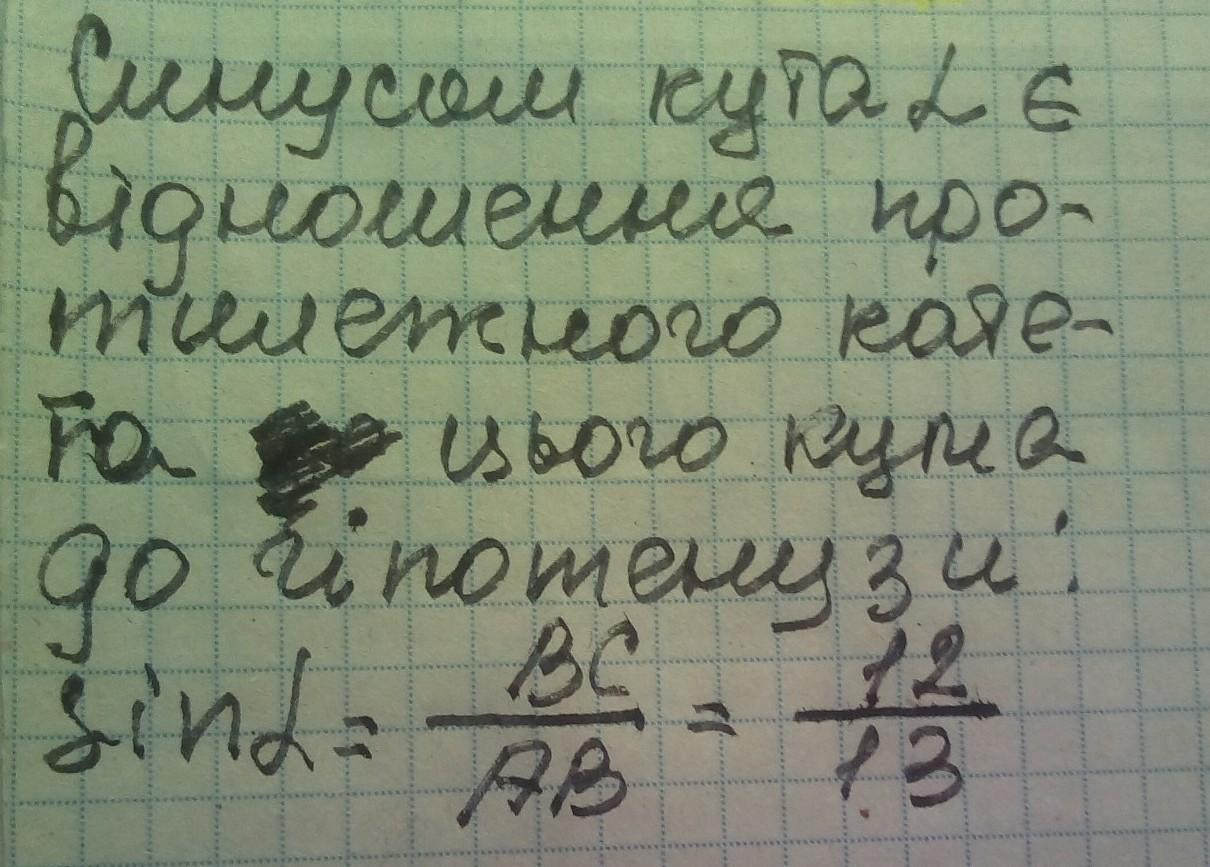 Синусом кута α є
відношення про-
тилежного кате-
та цього кута
до гіпотенузи:
sinα = BC/AB = 12/13